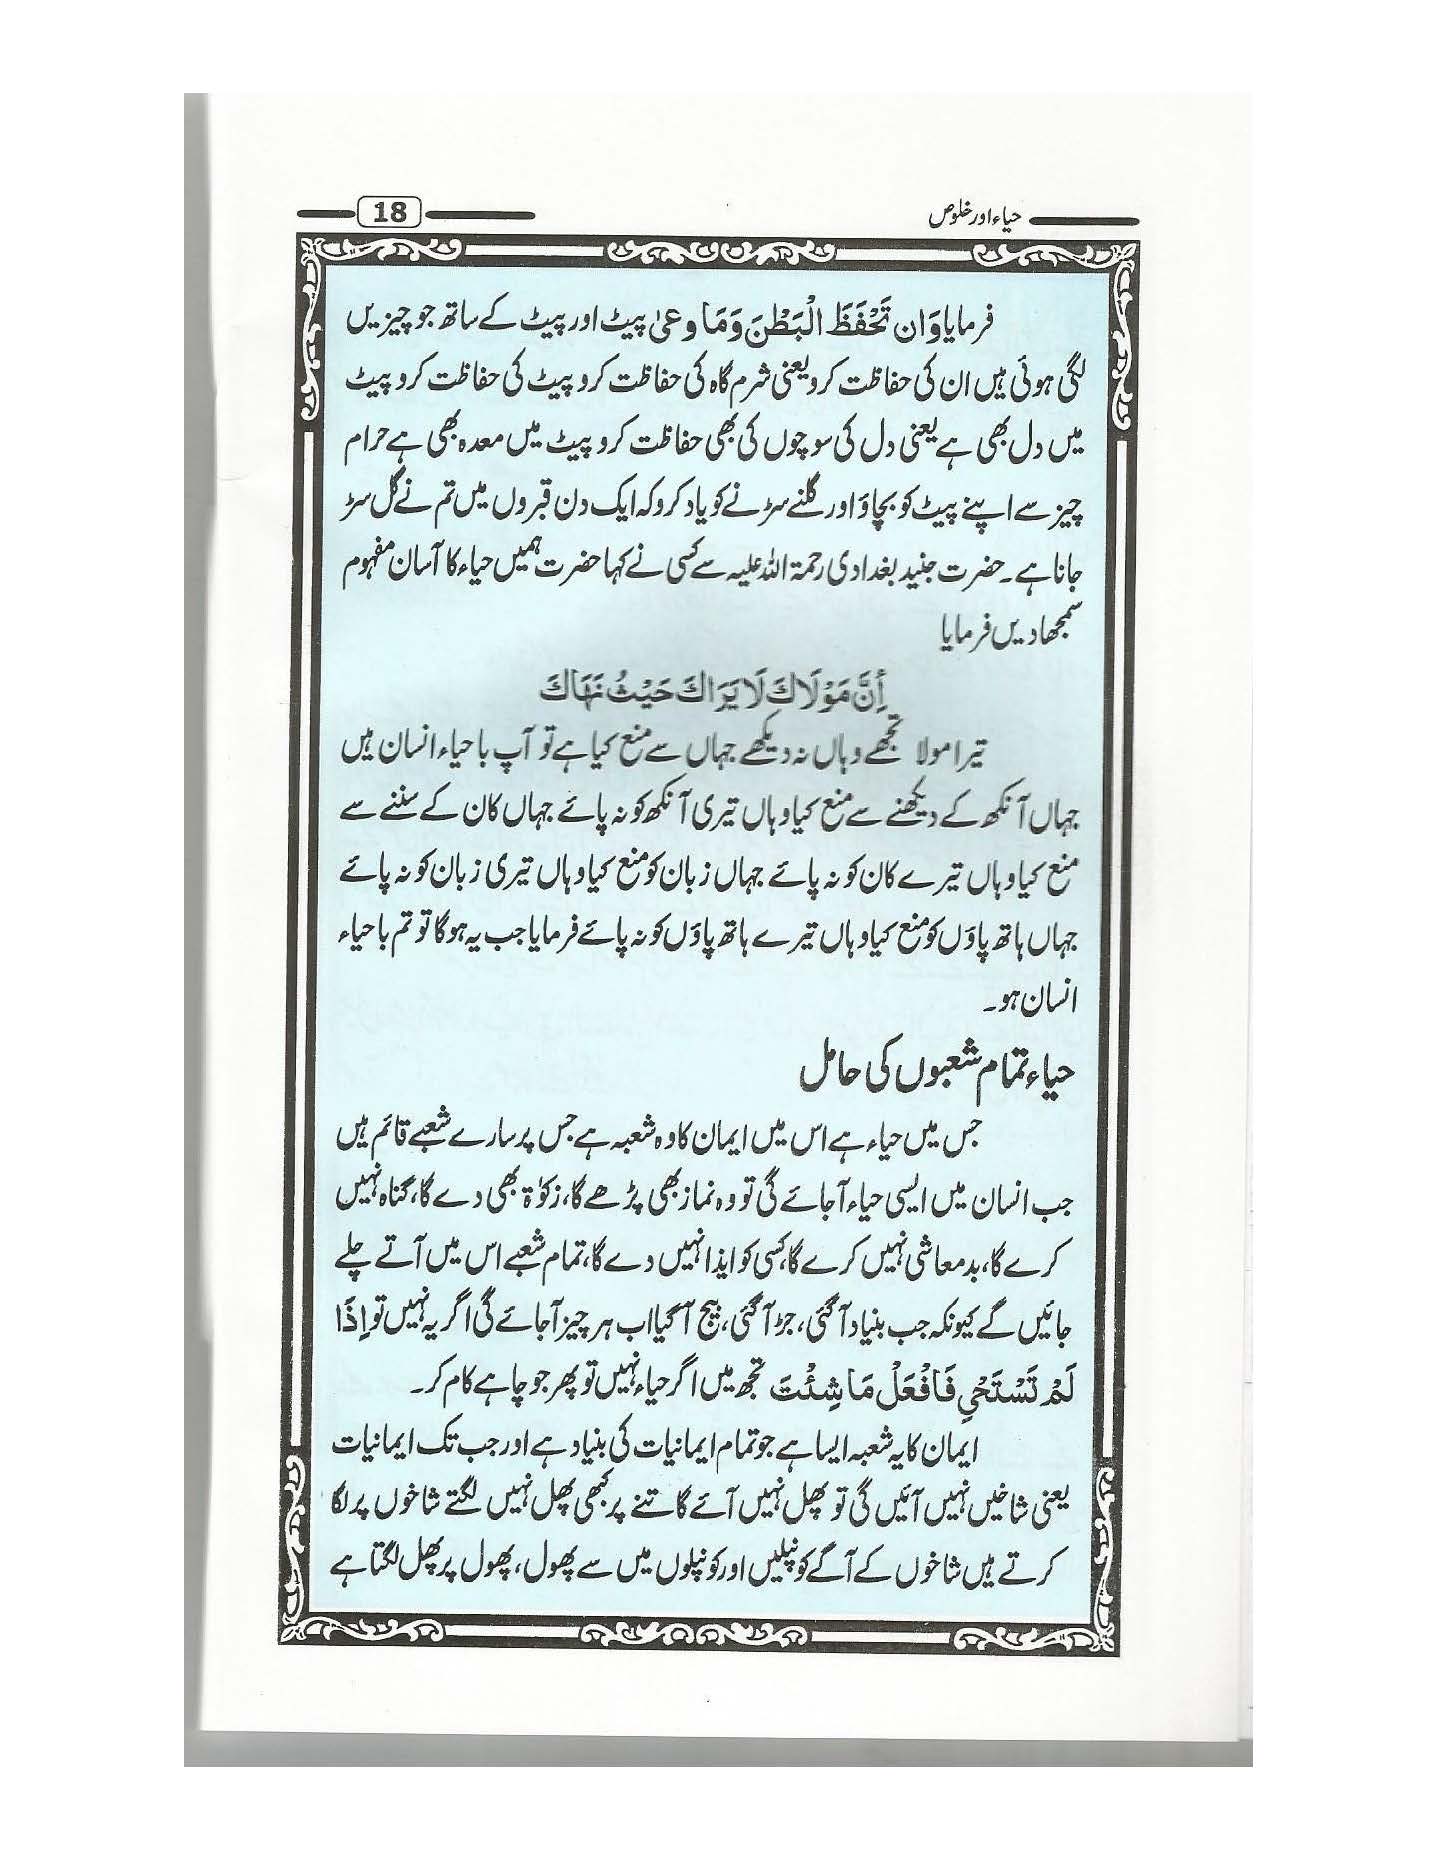 حیاء اور خلوص 18
فرمایا وَان تَحْفَظَ الْبَطْنَ وَمَا وعیٰ پیٹ اور پیٹ کے ساتھ جو چیزیں
لگی ہوئی ہیں ان کی حفاظت کرو یعنی شرم گاہ کی حفاظت کرو پیٹ کی حفاظت کرو پیٹ
میں دل بھی ہے یعنی دل کی سوچوں کی بھی حفاظت کرو پیٹ میں معدہ بھی ہے حرام
چیز سے اپنے پیٹ کو بچاؤ اور گلنے سڑنے کو یاد کرو کہ ایک دن قبروں میں تم نے گل سڑ
جانا ہے۔ حضرت جنید بغدادی رحمۃ اللہ علیہ سے کسی نے کہا حضرت ہمیں حیاء کا آسان مفہوم
سمجھا دیں فرمایا
أِنَّ مَوْلَاكَ لَا يَرَاكَ حَيْثُ نَهَاكَ
تیرا مولا تجھے وہاں نہ دیکھے جہاں سے منع کیا ہے تو آپ با حیاء انسان ہیں
جہاں آنکھ کے دیکھنے سے منع کیا وہاں تیری آنکھ کو نہ پائے جہاں کان کے سننے سے
منع کیا وہاں تیرے کان کو نہ پائے جہاں زبان کو منع کیا وہاں تیری زبان کو نہ پائے
جہاں ہاتھ پاؤں کو منع کیا وہاں تیرے ہاتھ پاؤں کو نہ پائے فرمایا جب یہ ہوگا تو تم با حیاء
انسان ہو۔
حیاء تمام شعبوں کی حامل
جس میں حیاء ہے اس میں ایمان کا وہ شعبہ ہے جس پر سارے شعبے قائم ہیں
جب انسان میں ایسی حیاء آجائے گی تو وہ نماز بھی پڑھے گا، زکوٰۃ بھی دے گا، گناہ نہیں
کرے گا، بدمعاشی نہیں کرے گا، کسی کو ایذا نہیں دے گا، تمام شعبے اس میں آتے چلے
جائیں گے کیونکہ جب بنیاد آگئی، جڑ آگئی، بیج آگیا اب ہر چیز آجائے گی اگر یہ نہیں تو إِذَا
لَمْ تَسْتَحْيِ فَافْعَلْ مَا شِئْتَ تجھ میں اگر حیاء نہیں تو پھر جو چاہے کام کر۔
ایمان کا یہ شعبہ ایسا ہے جو تمام ایمانیات کی بنیاد ہے اور جب تک ایمانیات
یعنی شاخیں نہیں آئیں گی تو پھل نہیں آئے گا تنے پر کبھی پھل نہیں لگتے شاخوں پر لگا
کرتے ہیں شاخوں کے آگے کونپلیں اور کونپلوں میں سے پھول، پھول پر پھل لگتا ہے